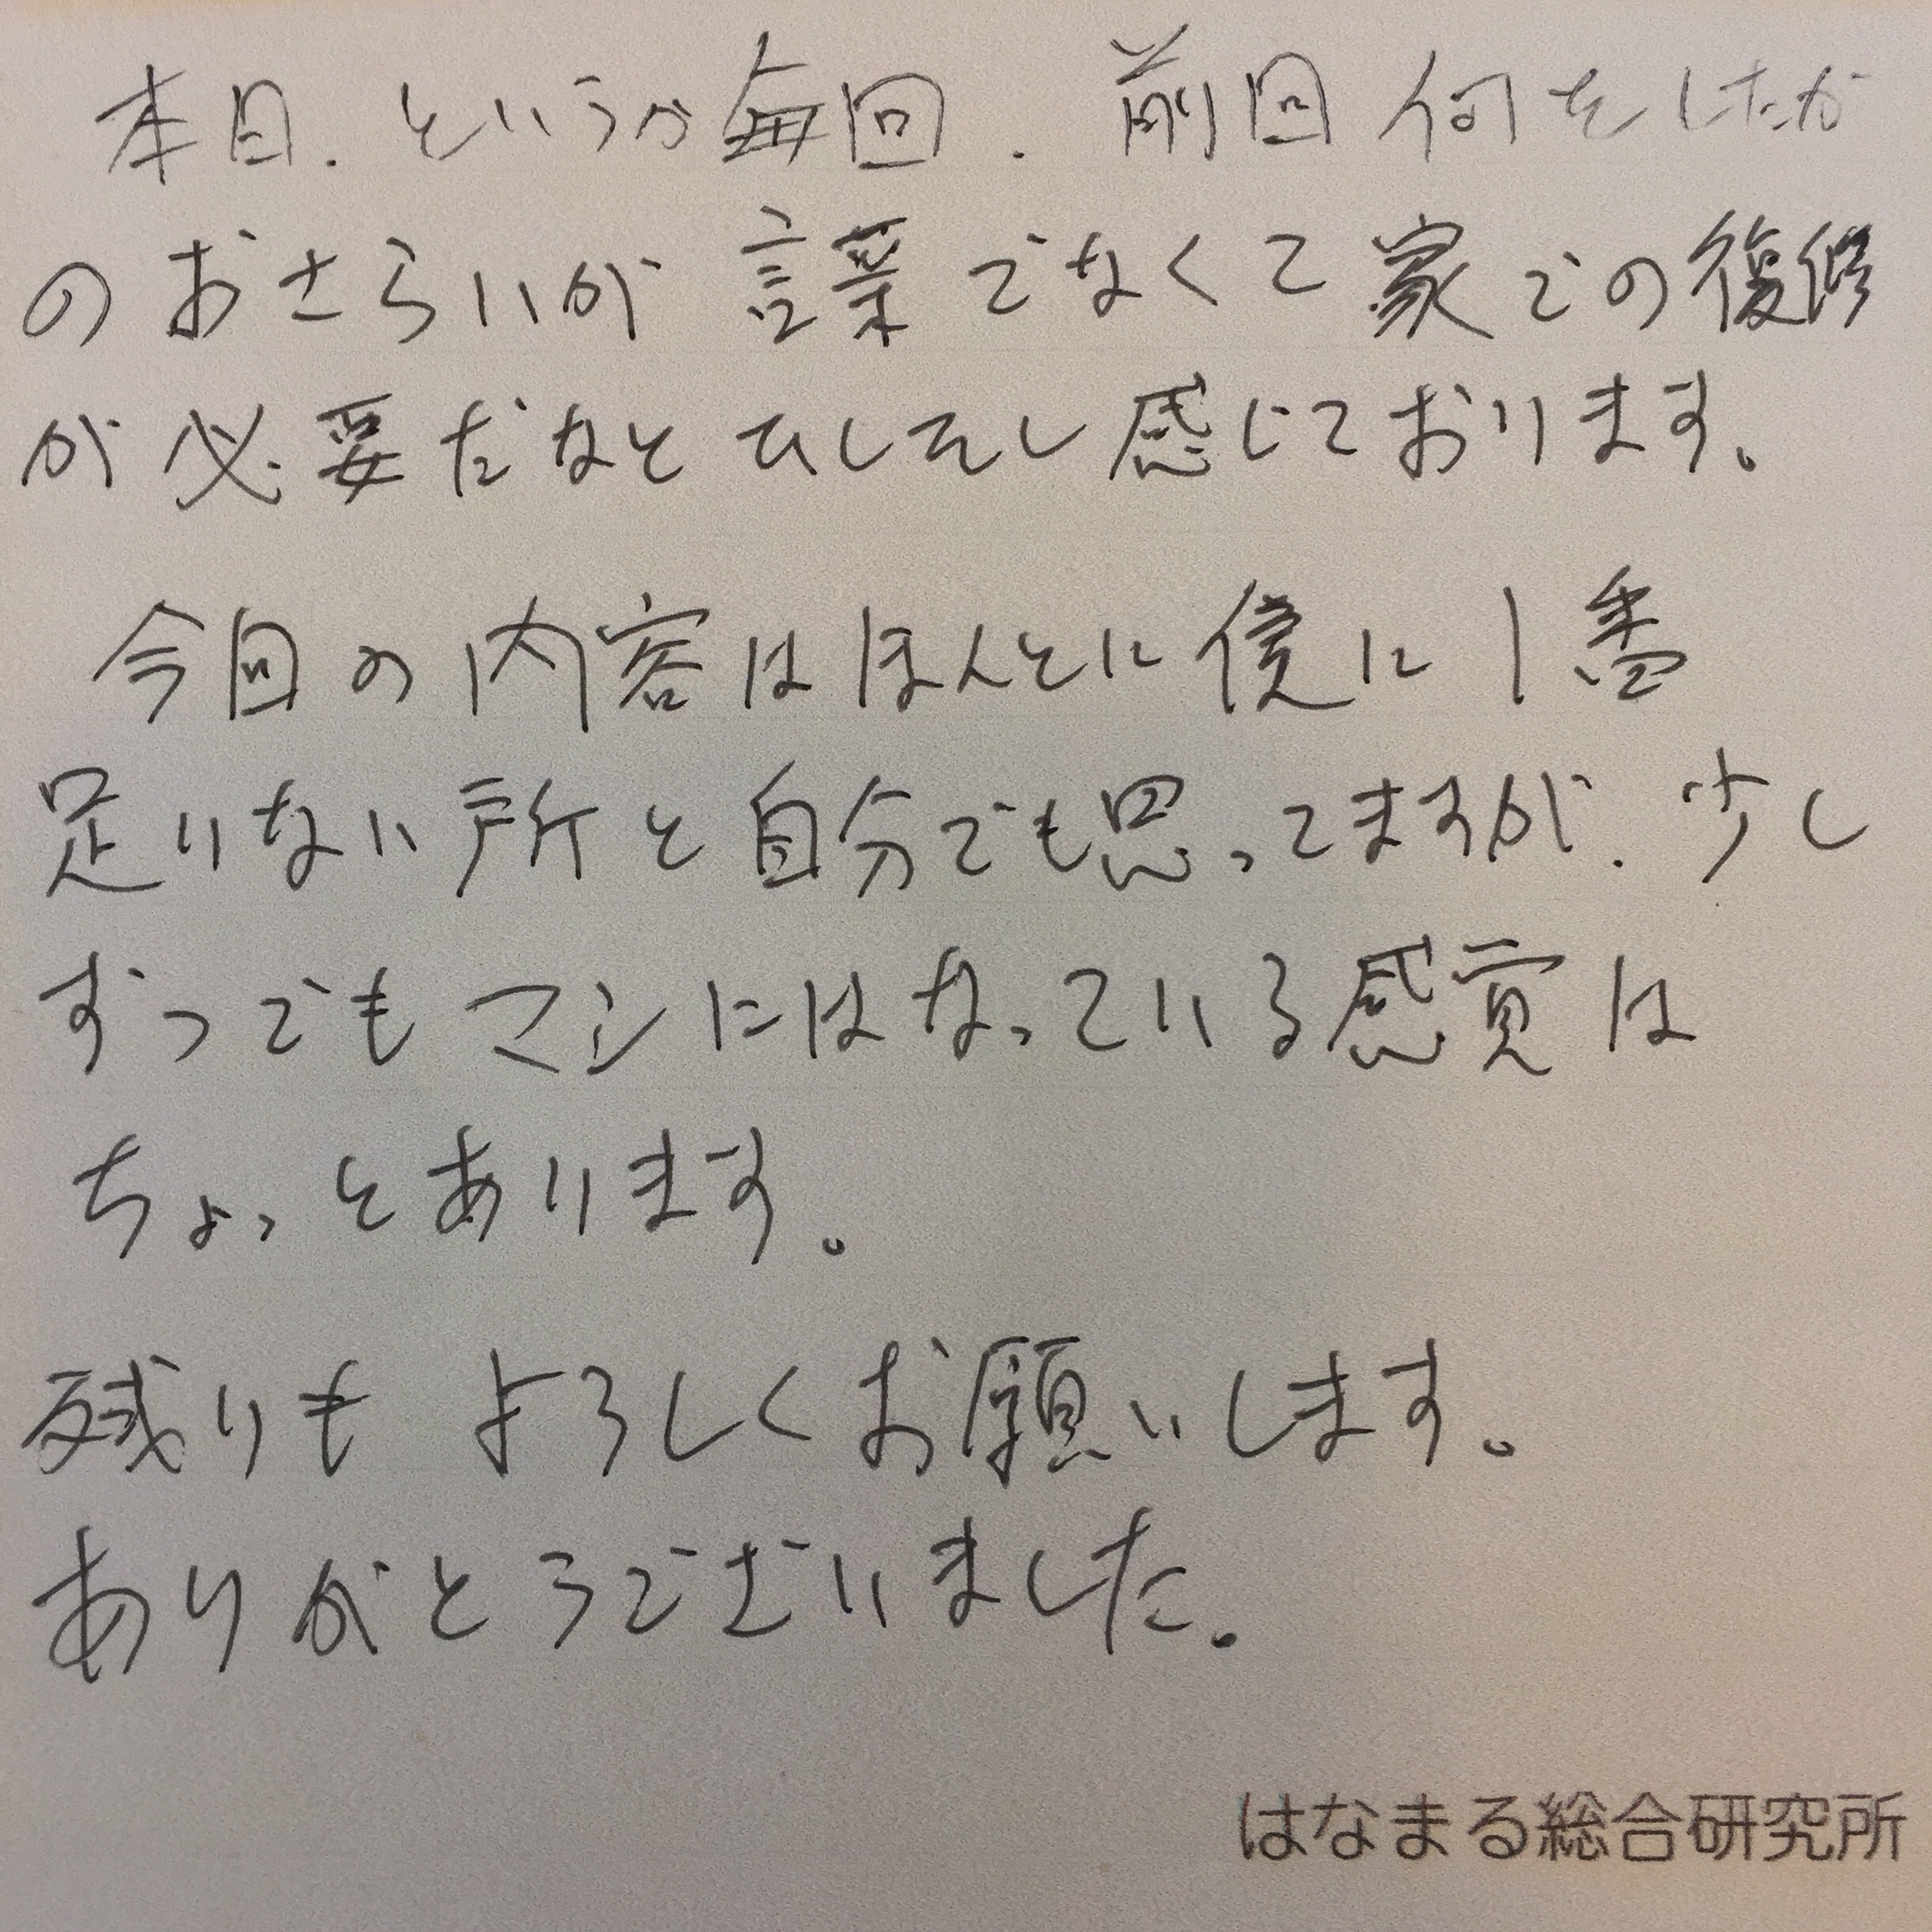 本日、というか毎回、前回何をしたか
のおさらいが言葉でなくて家での復修
が必要だなとひしひし感じております。
今回の内容はほんとに僕に1番
足りない所と自分でも思ってますが、少し
ずつでもマシにはなっている感覚は
ちょっとあります。
残りもよろしくお願いします。
ありがとうございました。
はなまる総合研究所